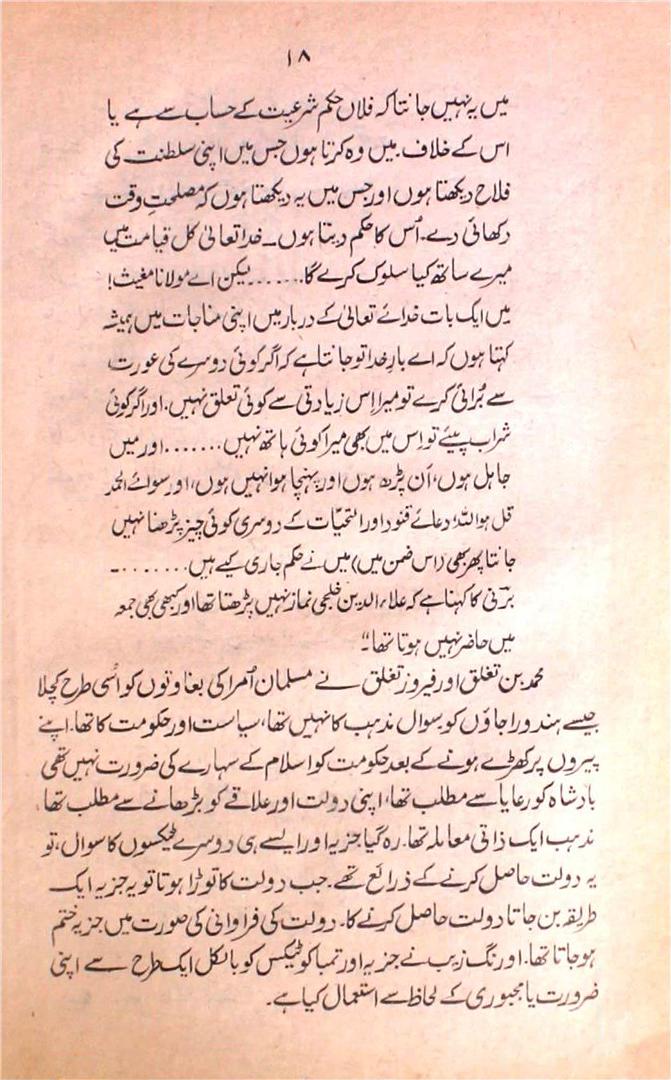 ۱۸
میں یہ نہیں جانتا کہ فلاں حکم شرعیت کے حساب سے ہے یا
اس کے خلاف. میں وہ کرتا ہوں جس میں اپنی سلطنت کی
فلاح دیکھتا ہوں اور جس میں یہ دیکھتا ہوں کہ مصلحتِ وقت
دکھائی دے۔ اُس کا حکم دیتا ہوں۔ خدا تعالیٰ کل قیامت میں
میرے ساتھ کیا سلوک کرے گا....... لیکن اے مولانا مغیث!
میں ایک بات خدائے تعالیٰ کے دربار میں اپنی مناجات میں ہمیشہ
کہتا ہوں کہ اے بارِ خدا تو جانتا ہے کہ اگر کوئی دوسرے کی عورت
سے بُرائی کرے تو میرا اِس زیادتی سے کوئی تعلق نہیں، اور اگر کوئی
شراب پیئے تو اِس میں بھی میرا کوئی ہاتھ نہیں....... اور میں
جاہل ہوں، اَن پڑھ ہوں اور پہنچا ہوا نہیں ہوں، اور سوائے الحمد
قل ہو اللہ، دعائے قنود اور التحیّات کے دوسری کوئی چیز پڑھنا نہیں
جانتا پھر بھی (اس ضمن میں) میں نے حکم جاری کیے ہیں.......۔
برَنی کا کہنا ہے کہ علاءالدین خلجی نماز نہیں پڑھتا تھا اور کبھی بھی جمعہ
میں حاضر نہیں ہوتا تھا۔"
محمد بن تغلق اور فیروز تغلق نے مسلمان اُمرا کی بغاوتوں کو اُسی طرح کچلا
جیسے ہندو راجاؤں کو۔ سوال مذہب کا نہیں تھا، سیاست اور حکومت کا تھا. اپنے
پیروں پر کھڑے ہونے کے بعد حکومت کو اسلام کے سہارے کی ضرورت نہیں تھی
بادشاہ کو رعایا سے مطلب تھا، اپنی دولت اور علاقے کو بڑھانے سے مطلب تھا،
مذہب ایک ذاتی معاملہ تھا. رہ گیا جزیہ اور ایسے ہی دوسرے ٹیکسوں کا سوال، تو
یہ دولت حاصل کرنے کے ذرائع تھے۔ جب دولت کا توڑا ہوتا تو یہ جزیہ ایک
طریقہ بن جاتا دولت حاصل کرنے کا۔ دولت کی فراوانی کی صورت میں جزیہ ختم
ہو جاتا تھا. اورنگ زیب نے جزیہ اور تمباکو ٹیکس کو بالکل ایک طرح سے اپنی
ضرورت یا مجبوری کے لحاظ سے استعمال کیا ہے۔